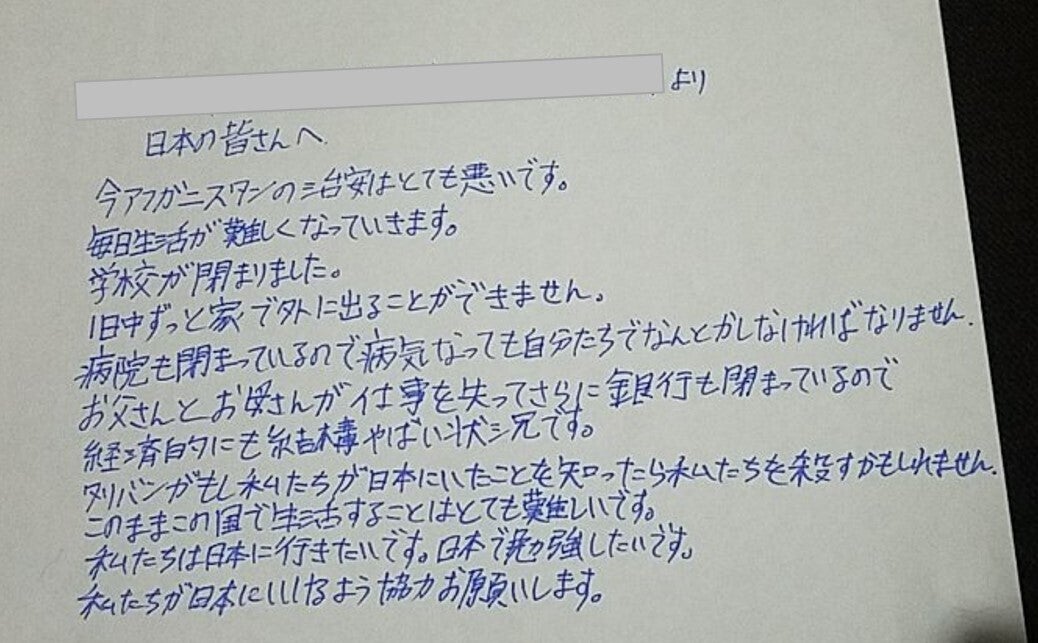 より
日本の皆さんへ
今アフガニスタンの治安はとても悪いです。
毎日生活が難しくなっていきます。
学校が閉まりました。
1日中ずっと家で外に出ることができません。
病院も閉まっているので病気なっても自分たちでなんとかしなければなりません.
お父さんとお母さんが仕事を失ってさらに銀行も閉まっているので
経済的にも結構やばい状況です。
タリバンがもし私たちが日本にいたことを知ったら私たちを殺すかもしれません.
このままこの国で生活することはとても難しいです。
私たちは日本に行きたいです。日本で勉強したいです。
私たちが日本にいけるよう協力お願いします。